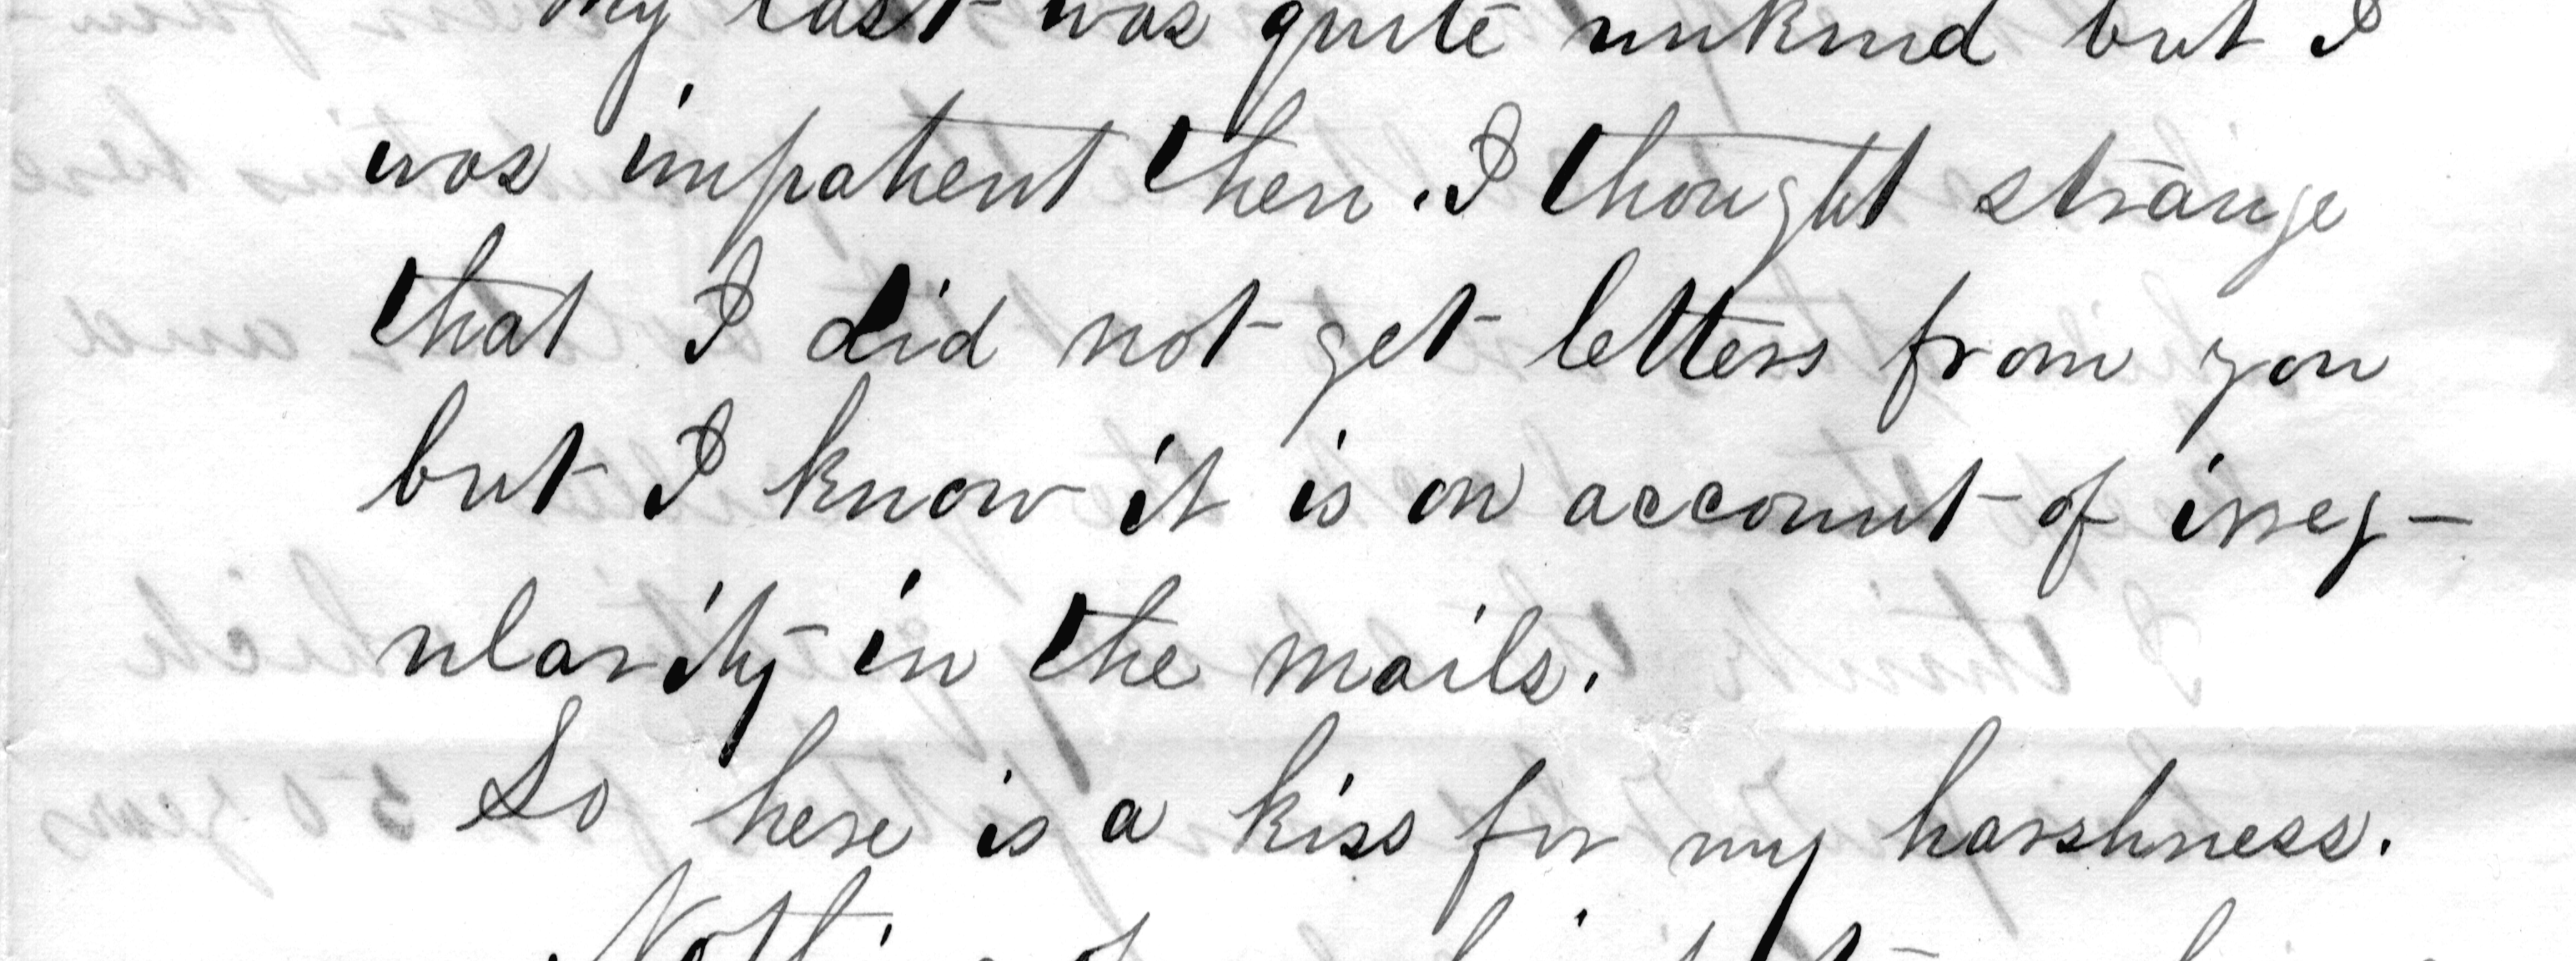 My last was quite unkind but I
was impatient then. I thought strange
that I did not get letters from you
but I know it is on account of irreg-
ularity in the mails.
So here is a kiss for my harshness.